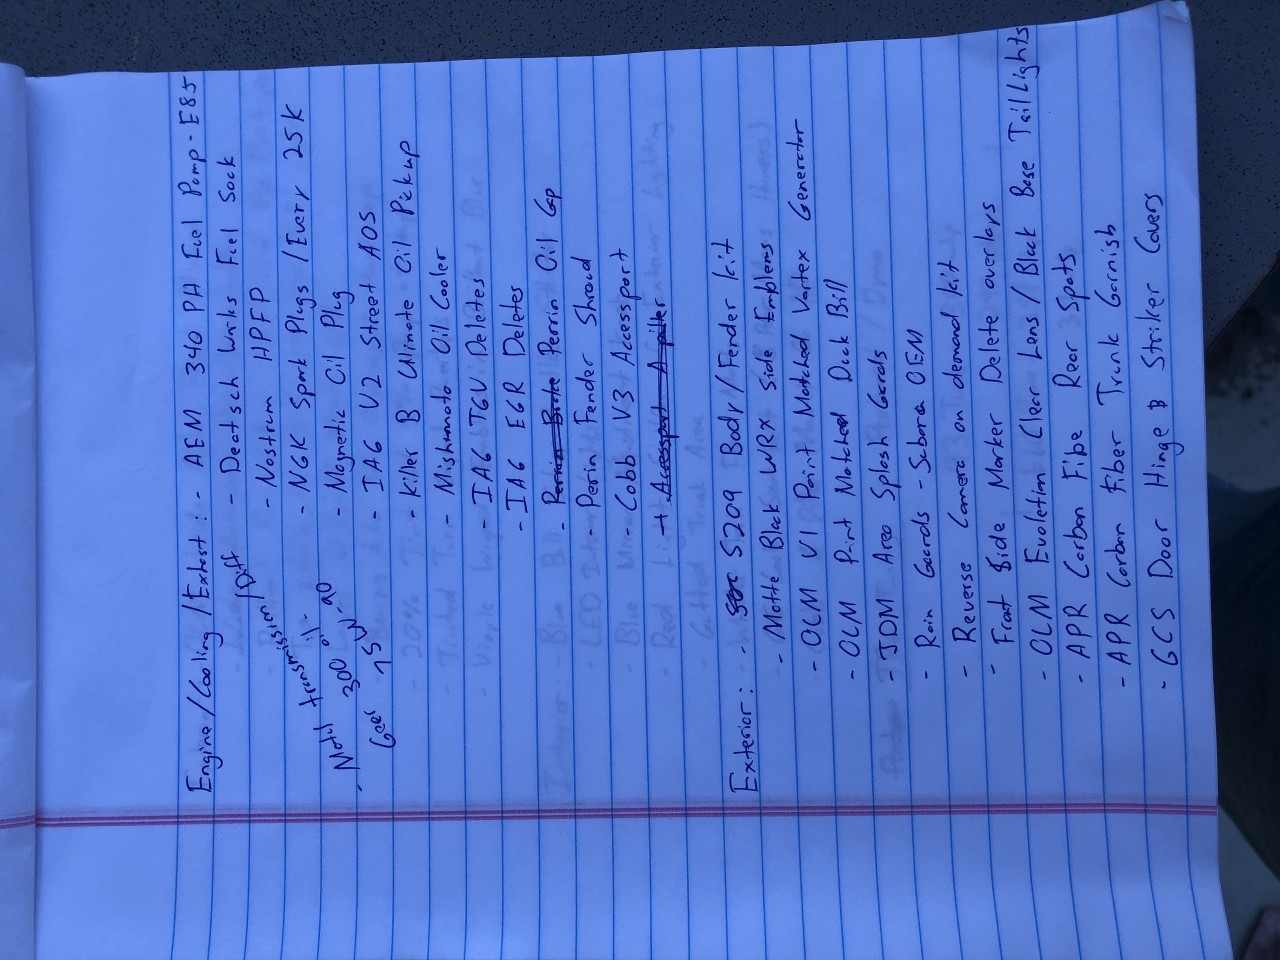 Engine/Cooling/Exhost: - AEM 340 PH Fuel Pump - E85
- Deatsch Works Fuel Sock
- Nostrum HPFP
- NGK Spark Plugs / Every 25K
- Magnetic Oil Plug
- IAG V2 Street AOS
- Killer B Ulimate Oil Pickup
- Mishimoto Oil Cooler
- IAG TGV Deletes
- IAG EGR Deletes
- Perrin Oil Cap
- Perin Fender Shroud
- Cobb V3 Accessport
- Accessport A-piller
- Motul transmission/Diff
300 oil -
Gear 75W-90
Exterior: - S209 Body/Fender kit
- Matte Black WRX Side Emblems
- OLM V1 Paint Matched Vortex Generator
- OLM Paint Matched Duck Bill
- JDM Area Splash Gards
- Rain Guards - Subaru OEM
- Reverse Camera on demand kit
- Front Side Marker Delete overlays
- OLM Evolution Clear Lens / Black Base Tail Lights
- APR Carbon Fibe Rear Spats
- APR Carbon Fiber Trunk Garnish
- GCS Door Hinge & Striker Covers